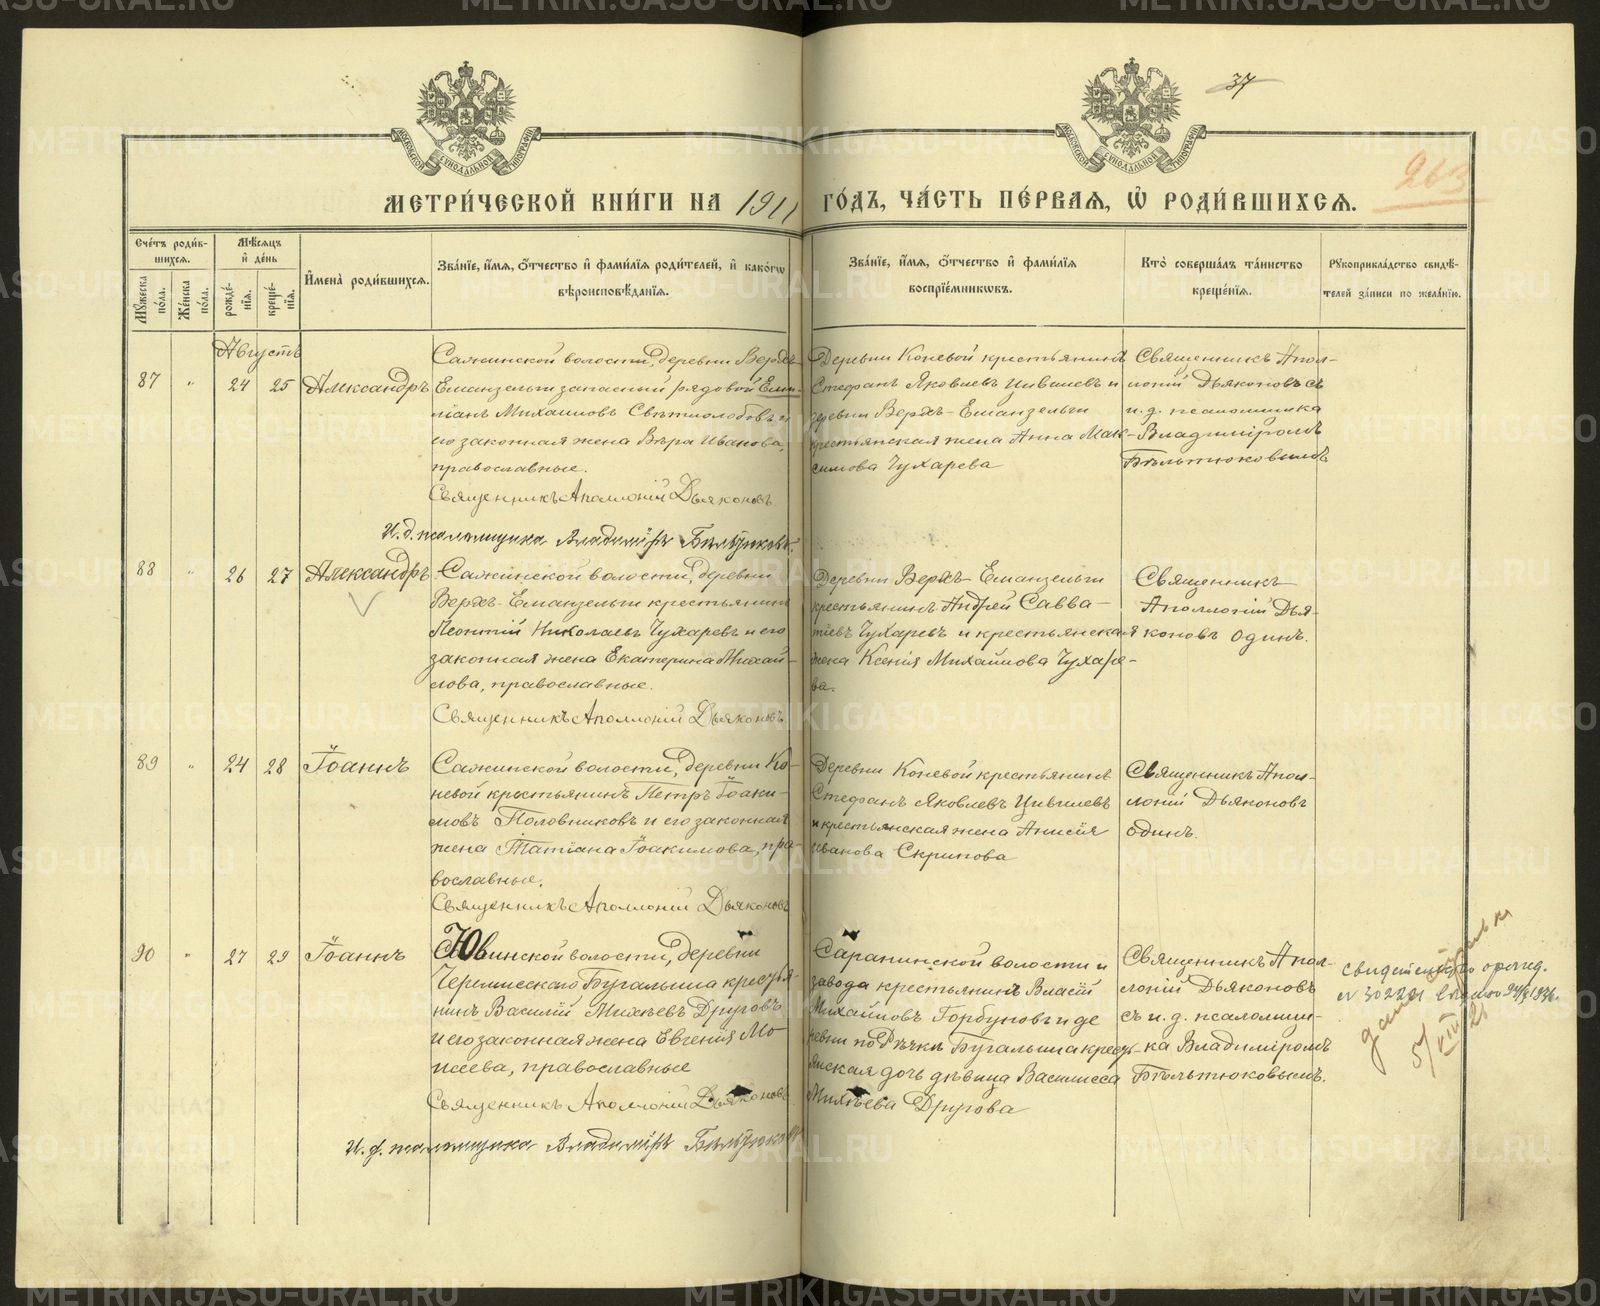 37
263
МОСКОВСКОЙ СѴНОДАЛЬНОЙ ТИПОГРАФІИ
МОСКОВСКОЙ СѴНОДАЛЬНОЙ ТИПОГРАФІИ
МЕТРИ́ЧЕСКОЙ КНИ́ГИ НА 1911 ГО́ДЪ, ЧА́СТЬ ПЕ́РВАѦ, Ѡ҆ РОДИ́ВШИХСѦ.
Сче́тъ роди́в-
шихсѧ.
Мꙋ́жеска по́ла.
Же́нска по́ла.
Мѣ́сѧцъ
и҆ де́нь
рожде́-
нїѧ.
креще́-
нїѧ.
И҆мена̀ роди́вшихсѧ.
Зва́нїе, и҆́мѧ, ѻ҆́тчество и҆ фами́лїѧ роди́телей, и҆ како́гѡ
вѣроисповѣ́данїѧ.
Зва́нїе, и҆́мѧ, ѻ҆́тчество и҆ фами́лїѧ
воспрїе́мникѡвъ.
Кто̀ соверша́лъ та́инство
креще́нїѧ.
Рꙋкоприкла́дство свидѣ́-
телей за́писи по жела́нїю.
Августъ
87 " 24 25 Александръ
Сажинской волости, деревни Верхъ-
Еманзельги запасный рядовой Еми-
ліанъ Михаиловъ Свѣтлолобовъ и
его законная жена Вѣра Иванова,
православные.
Священникъ Аполлоній Дьяконовъ
И. д. псаломщика Владиміръ Бѣльтюковъ.
Деревни Коневой крестьянинъ
Стефанъ Яковлевъ Цивилевъ и
деревни Верхъ-Еманзельги
крестьянская жена Анна Мак-
симова Чухарева
Священникъ Апол-
лоній Дьяконовъ съ
и. д. псаломщика
Владиміромъ
Бѣльтюковымъ
88 " 26 27 Александръ
Сажинской волости, деревни
Верхъ-Еманзельги крестьянинъ
Леонтій Николаевъ Чухаревъ и его
законная жена Екатерина Михай-
лова, православные.
Священникъ Аполлоній Дьяконовъ
Деревни Верхъ-Еманзельги
крестьянинъ Андрей Савва-
тіевъ Чухаревъ и крестьянская
жена Ксенія Михайлова Чухаре-
ва.
Священникъ
Аполлоній Дья-
коновъ одинъ.
89 " 24 28 Іоаннъ
Сажинской волости, деревни Ко-
невой крестьянинъ Петръ Іоаки-
мовъ Половниковъ и его законная
жена Татіана Іоакимова, пра-
вославные.
Священникъ Аполлоній Дьяконовъ
Деревни Коневой крестьянинъ
Стефанъ Яковлевъ Цивилевъ
и крестьянская жена Анисія
Иванова Скрипова
Священникъ Апол-
лоній Дьяконовъ
одинъ.
90 " 27 29 Іоаннъ
Ювинской волости, деревни
Черемисскаго Бугалыша крестья-
нинъ Василій Михѣевъ Друговъ
и его законная жена Евгенія Мо-
исеева, православные
Священникъ Аполлоній Дьяконовъ
И. д. псаломщика Владиміръ Бѣльтюковъ
Саранинской волости и
завода крестьянинъ Власій
Михайловъ Горбуновъ и де
ревни по Рѣчкѣ Бугалыша кресть-
янская дочь дѣвица Василисса
Михѣева Другова
Священникъ Апол-
лоній Дьяконовъ
съ и. д. псаломщи-
ка Владиміромъ
Бѣльтюковымъ.